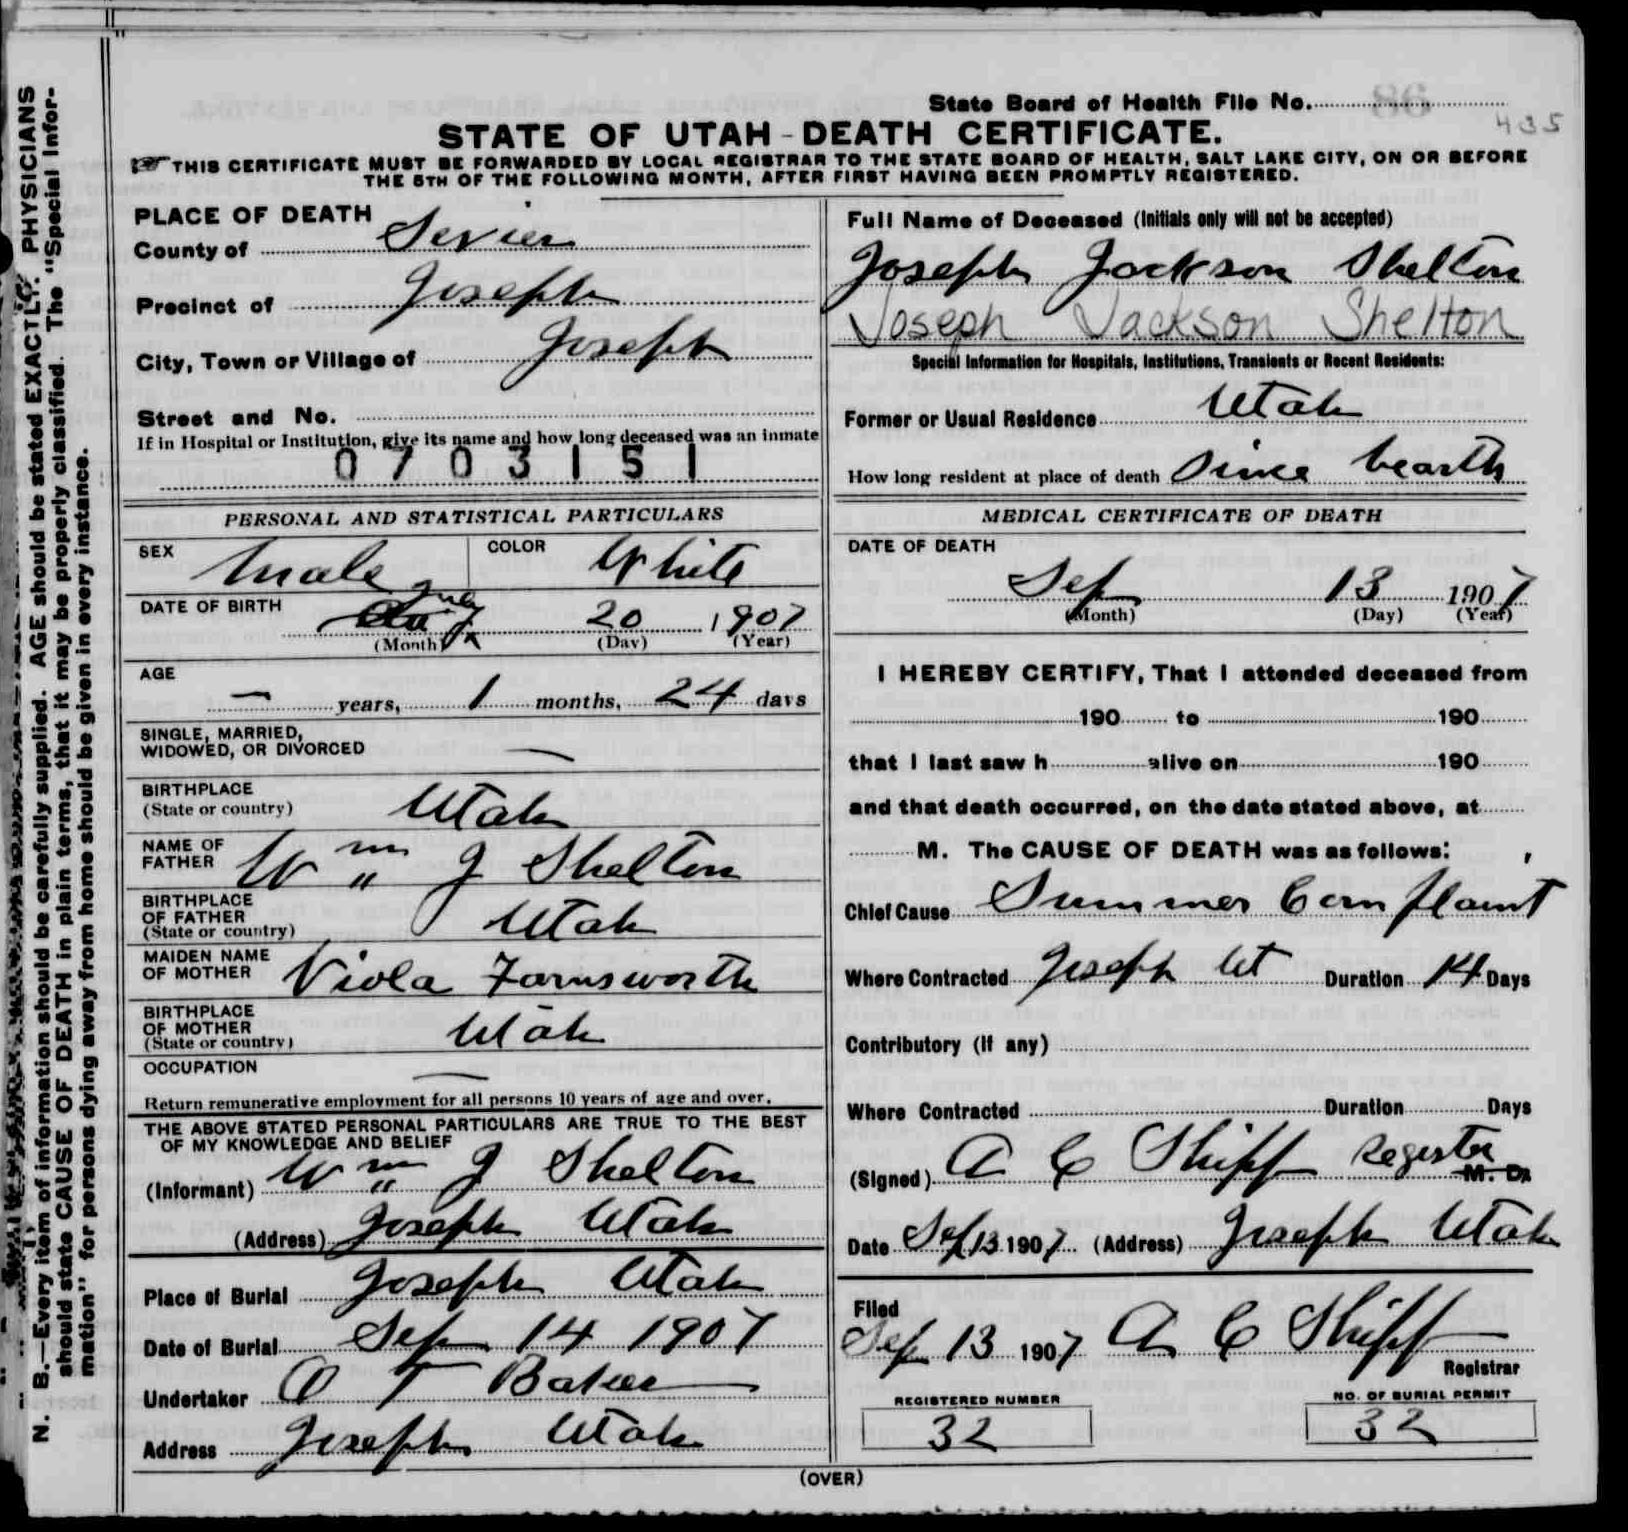 N. B.—Every item of information should be carefully supplied. AGE should be stated EXACTLY. PHYSICIANS
should state CAUSE OF DEATH in plain terms, that it may be properly classified. The "Special Infor-
mation" for persons dying away from home should be given in every instance.
State Board of Health File No.
435
STATE OF UTAH - DEATH CERTIFICATE.
THIS CERTIFICATE MUST BE FORWARDED BY LOCAL REGISTRAR TO THE STATE BOARD OF HEALTH, SALT LAKE CITY, ON OR BEFORE
THE 5TH OF THE FOLLOWING MONTH, AFTER FIRST HAVING BEEN PROMPTLY REGISTERED.
PLACE OF DEATH
County of Sevier
Precinct of Joseph
City, Town or Village of Joseph
Street and No.
If in Hospital or Institution, give its name and how long deceased was an inmate
0703151
PERSONAL AND STATISTICAL PARTICULARS
SEX Male COLOR White
DATE OF BIRTH July 20 1907
(Month) (Day) (Year)
AGE
— years, 1 months, 24 days
SINGLE, MARRIED,
WIDOWED, OR DIVORCED —
BIRTHPLACE
(State or country) Utah
NAME OF
FATHER Wm J Shelton
BIRTHPLACE
OF FATHER
(State or country) Utah
MAIDEN NAME
OF MOTHER Viola Farnsworth
BIRTHPLACE
OF MOTHER
(State or country) Utah
OCCUPATION —
Return remunerative employment for all persons 10 years of age and over.
THE ABOVE STATED PERSONAL PARTICULARS ARE TRUE TO THE BEST
OF MY KNOWLEDGE AND BELIEF
(Informant) Wm J Shelton
(Address) Joseph Utah
Place of Burial Joseph Utah
Date of Burial Sep 14 1907
Undertaker O T Baker
Address Joseph Utah
Full Name of Deceased (Initials only will not be accepted)
Joseph Jackson Shelton
Joseph Jackson Shelton
Special Information for Hospitals, Institutions, Transients or Recent Residents:
Former or Usual Residence Utah
How long resident at place of death Since bearth
MEDICAL CERTIFICATE OF DEATH
DATE OF DEATH
Sep 13 1907
(Month) (Day) (Year)
I HEREBY CERTIFY, That I attended deceased from
190 to 190
that I last saw h alive on 190
and that death occurred, on the date stated above, at
M. The CAUSE OF DEATH was as follows:
Chief Cause Summer Complaint
Where Contracted Joseph Ut Duration 14 Days
Contributory (if any)
Where Contracted Duration Days
(Signed) A C Shipp Register M. D.
Date Sep 13 1907 (Address) Joseph Utah
Filed
Sep 13 1907 A C Shipp
Registrar
REGISTERED NUMBER
32
NO. OF BURIAL PERMIT
32
(OVER)